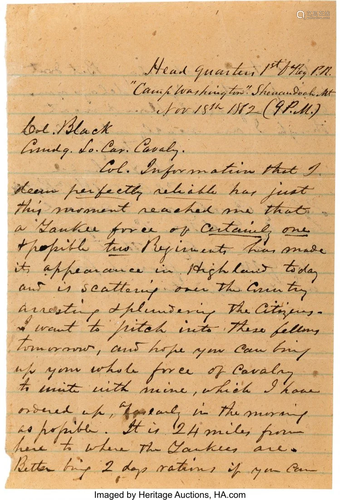 Head quarters 1st Reg P.R.
"Camp Washington" Shenandoah Mt
Nov 18th 1862 (9 P.M.)
Col. Black
Comdg. So. Car. Cavaly.
Col. Information that I
deem perfectly reliable has just
this moment reached me that
a Yankee force of certainly one
& possible two Regiments has made
its appearance in Highland today
and is scattering over the Country
arresting & plundering the Citizens.
I want to pitch into these fellows
tomorrow, and hope you can bring
up your whole force of cavalry
to unite with mine, which I have
ordered up, as early in the morning
as possible. It is 24 miles from
here to where the Yankees are.
Better bring 2 days rations if you can
Imaged by Heritage Auctions, HA.com